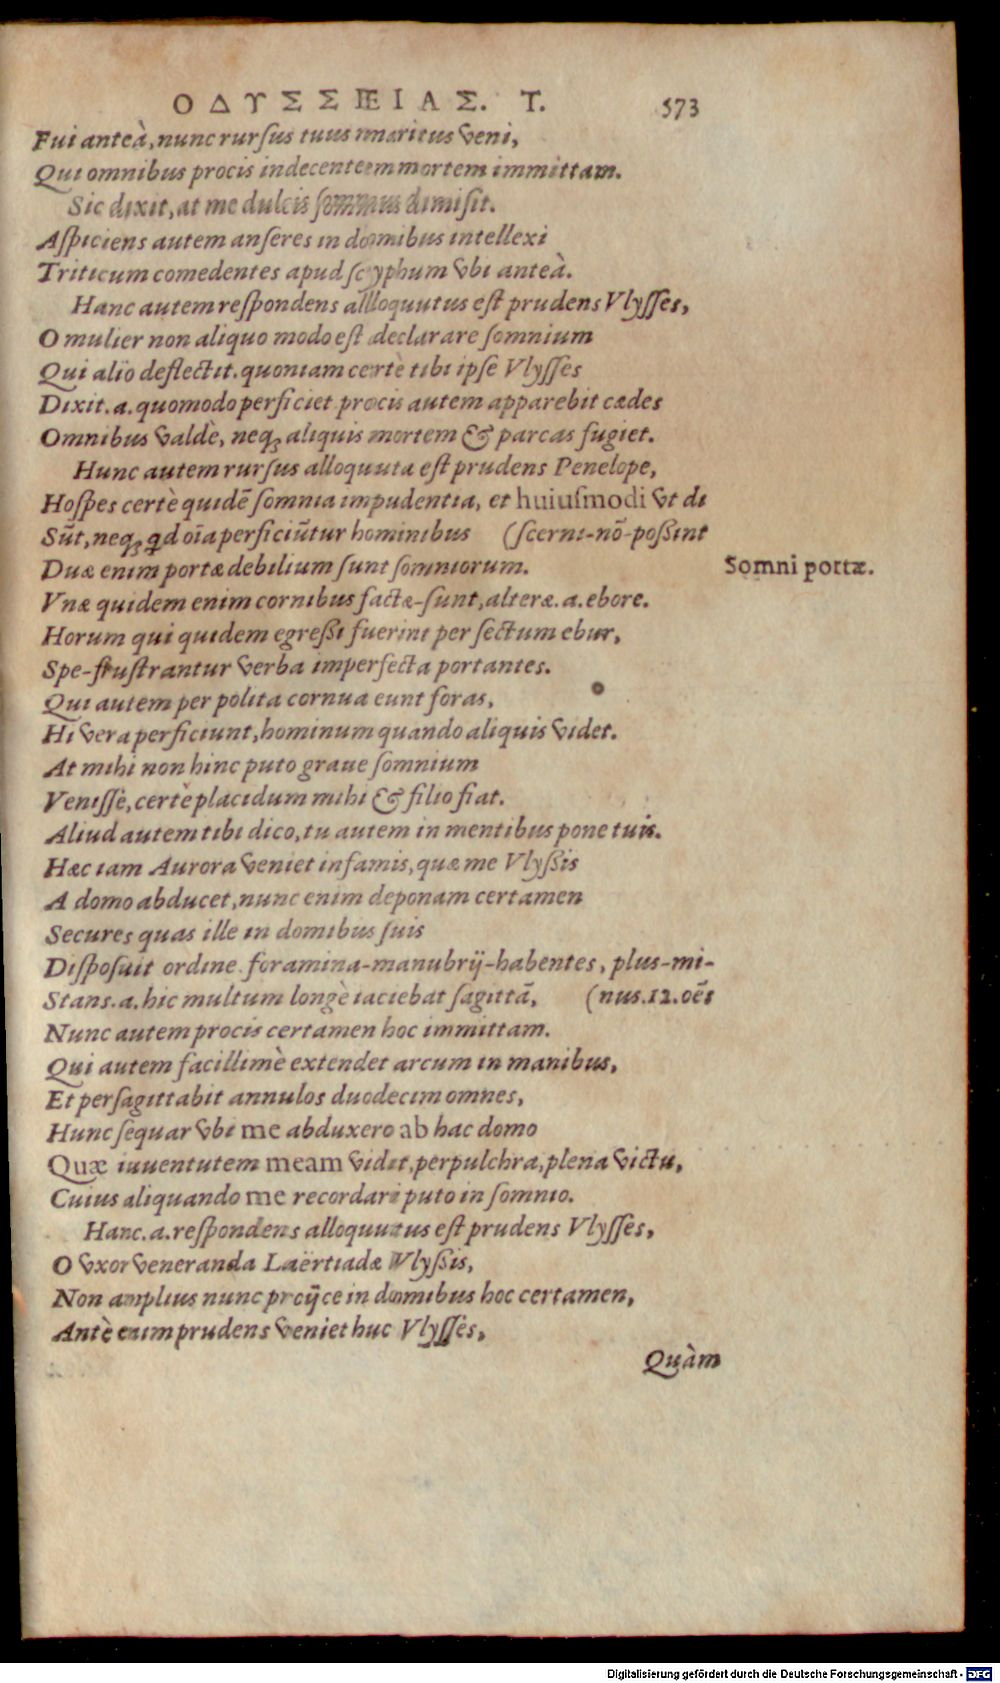 ΟΔΥΣΣΕΙΑΣ. Τ. 573
Fui anteà, nunc rursus tuus maritus veni,
Qui omnibus procis indecentem mortem immittam.
Sic dixit, at me dulcis somnus dimisit.
Aspiciens autem anseres in domibus intellexi
Triticum comedentes apud scyphum vbi anteà.
Hanc autem respondens alloquutus est prudens Vlysses,
O mulier non aliquo modo est declarare somnium
Qui aliò deflectit. quoniam certè tibi ipse Vlysses
Dixit. a. quomodo perficiet procis autem apparebit cædes
Omnibus valdè, neq; aliquis mortem & parcas fugiet.
Hunc autem rursus alloquuta est prudens Penelope,
Hospes certè quidē somnia impudentia, et huiusmodi vt di
Sūt, neq; qd oīa perficiūtur hominibus (scerni-nō-possint
Duæ enim portæ debilium sunt somniorum.
Somni portæ.
Vnæ quidem enim cornibus factæ-sunt, alteræ. a. ebore.
Horum qui quidem egressi fuerint per sectum ebur,
Spe-frustrantur verba imperfecta portantes.
Qui autem per polita cornua eunt foras,
Hi vera perficiunt, hominum quando aliquis videt.
At mihi non hinc puto graue somnium
Venisse, certè placidum mihi & filio fiat.
Aliud autem tibi dico, tu autem in mentibus pone tuis.
Hæc iam Aurora veniet infamis, quæ me Vlyssis
A domo abducet, nunc enim deponam certamen
Secures quas ille in domibus suis
Disposuit ordine foramina-manubrij-habentes, plus-mi-
Stans. a. hic multum longè iaciebat sagittā, (nus. 12. oēs
Nunc autem procis certamen hoc immittam.
Qui autem facillimè extendet arcum in manibus,
Et persagittabit annulos duodecim omnes,
Hunc sequar vbi me abduxero ab hac domo
Quæ iuuentutem meam vidit, perpulchra, plena victu,
Cuius aliquando me recordari puto in somnio.
Hanc. a. respondens alloquutus est prudens Vlysses,
O vxor veneranda Laërtiadæ Vlyssis,
Non amplius nunc proijce in domibus hoc certamen,
Antè enim prudens veniet huc Vlysses,
Quàm
Digitalisierung gefördert durch die Deutsche Forschungsgemeinschaft - DFG